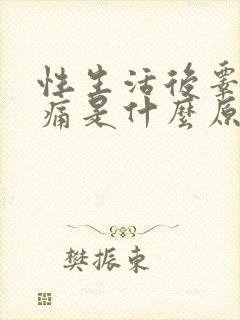 性生活后睾
痛是什麼原
樊振东